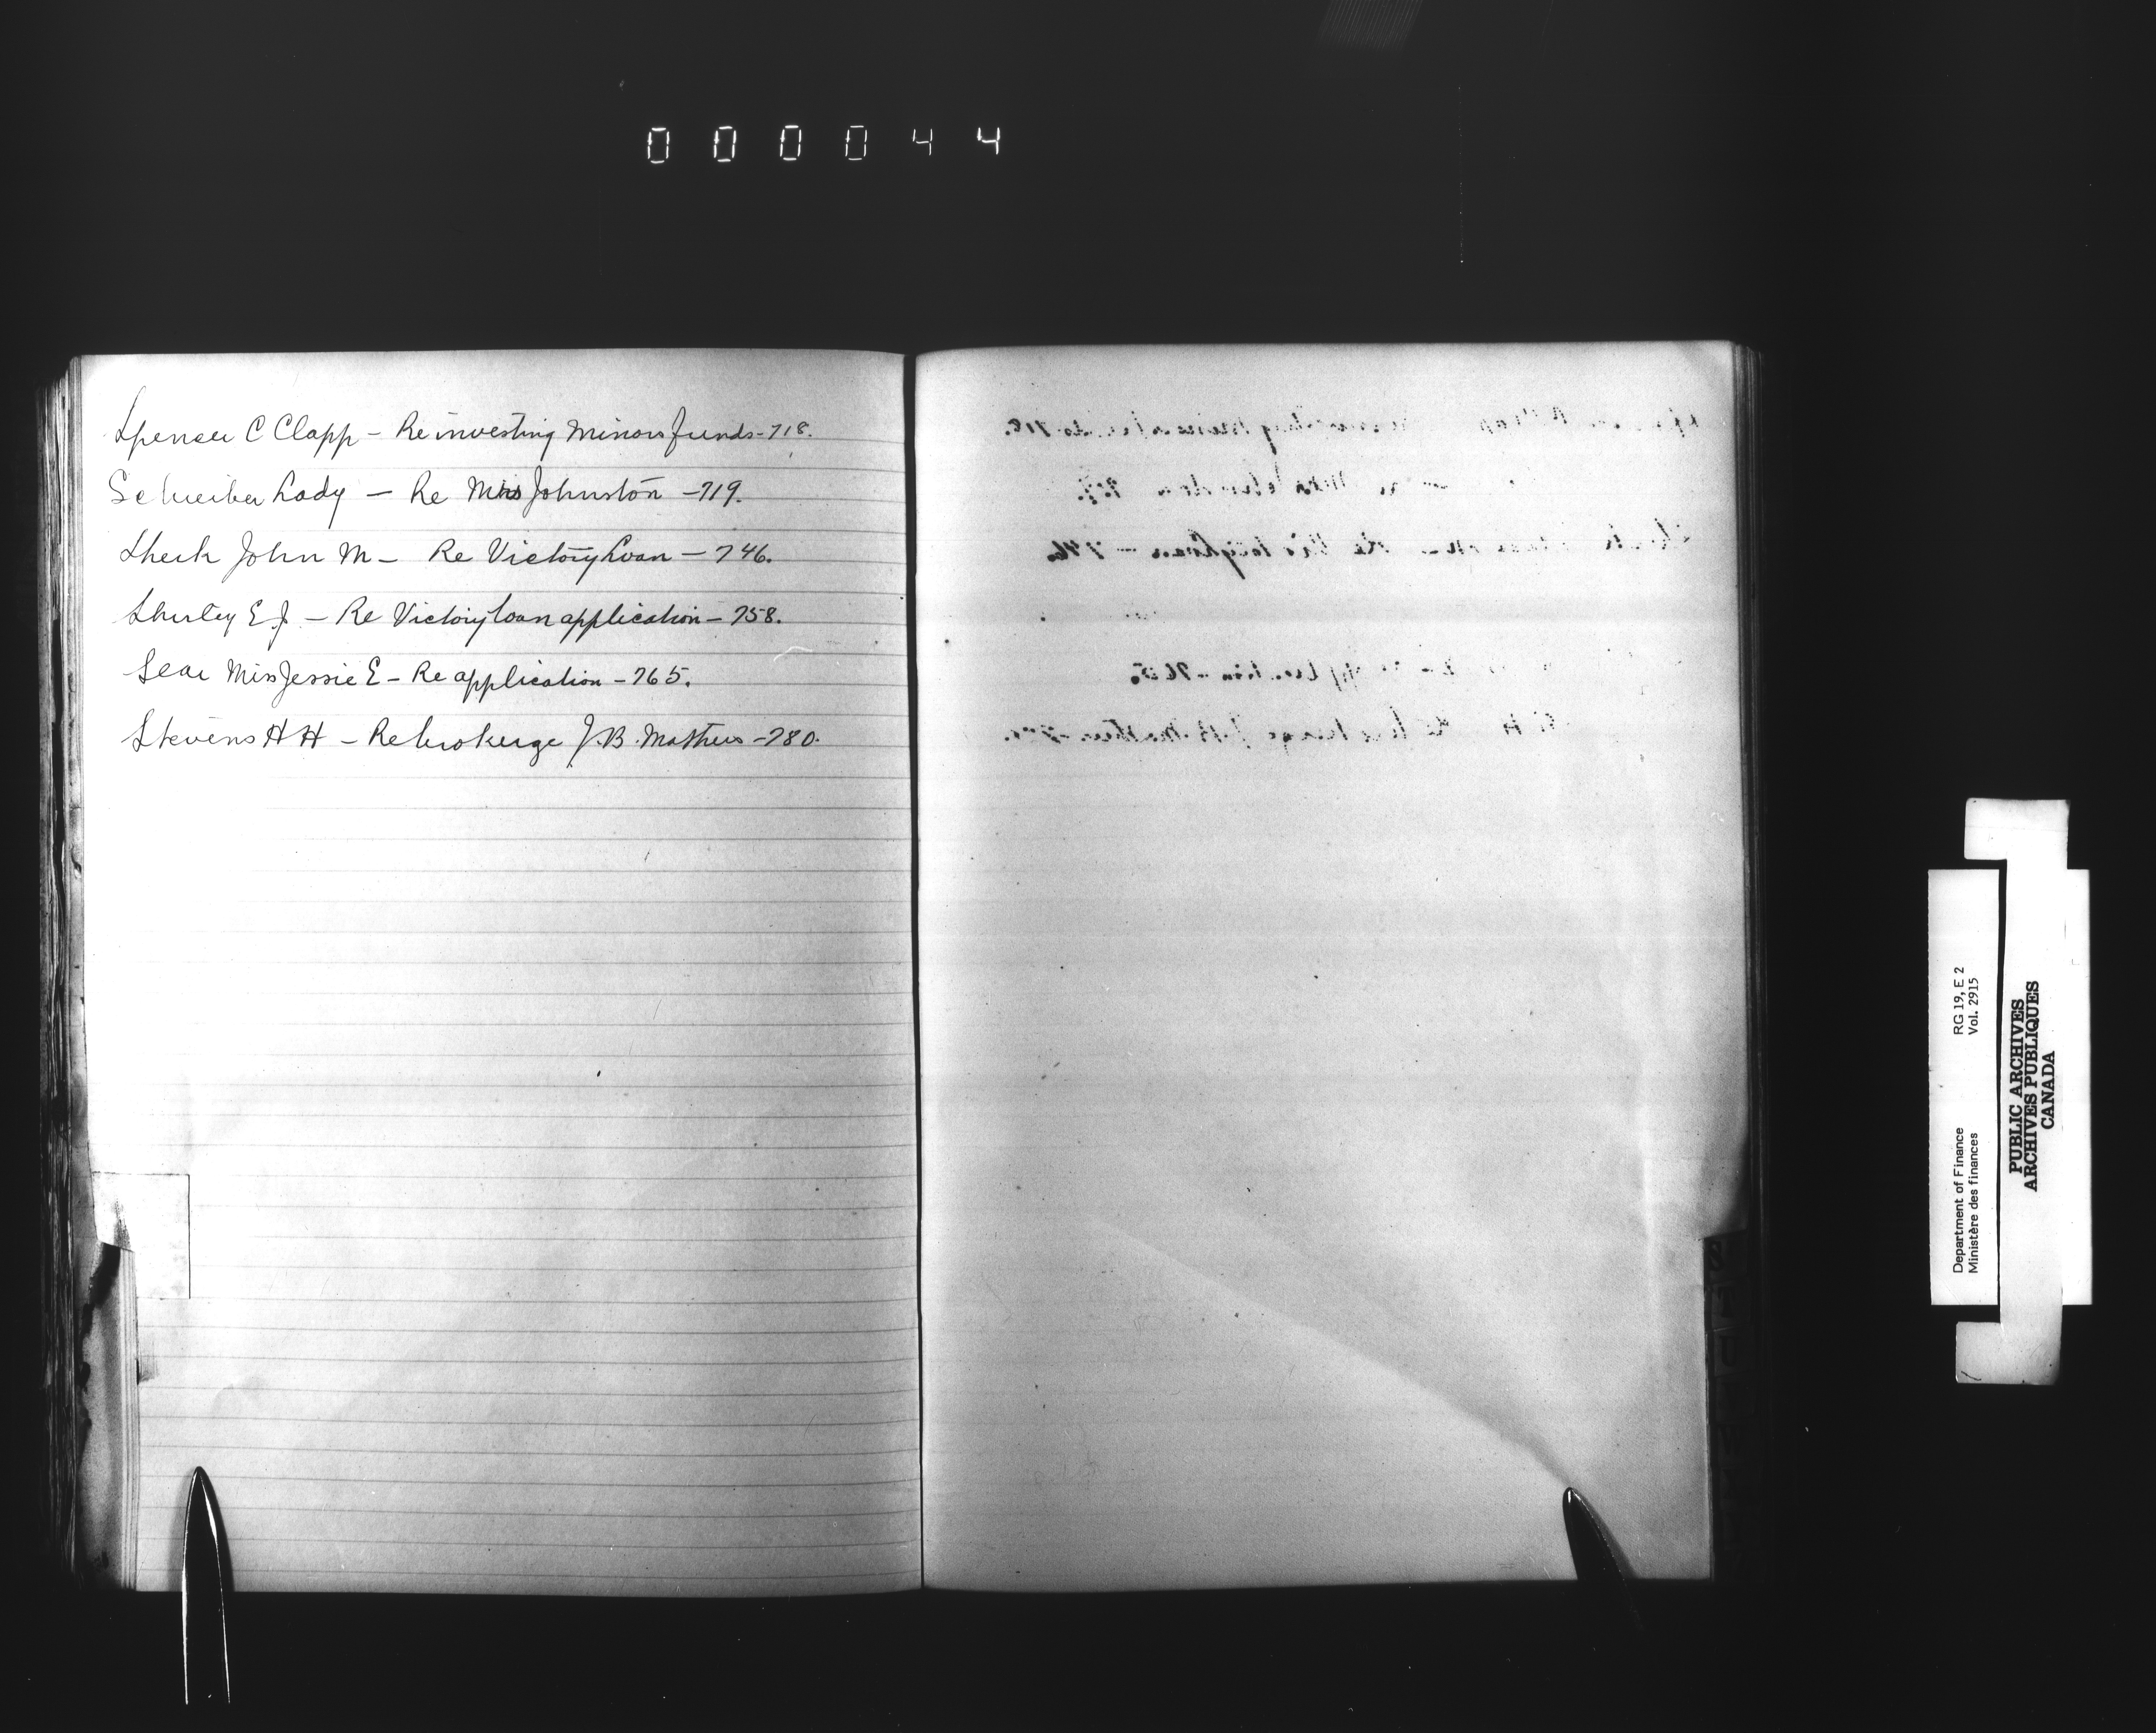 000044
Spencer C Clapp - Re investing Minors funds - 718.
Schreiber Lady - Re Mrs Johnston - 719.
Sherk John M - Re Victory Loan - 746.
Shurley E.J. - Re Victory Loan application - 758.
Sear Miss Jessie E - Re application - 765.
Stevens H H - Re brokerge J.B. Mathers - 780.
Department of Finance RG 19, E 2
Ministère des finances Vol. 2915
PUBLIC ARCHIVES
ARCHIVES PUBLIQUES
CANADA